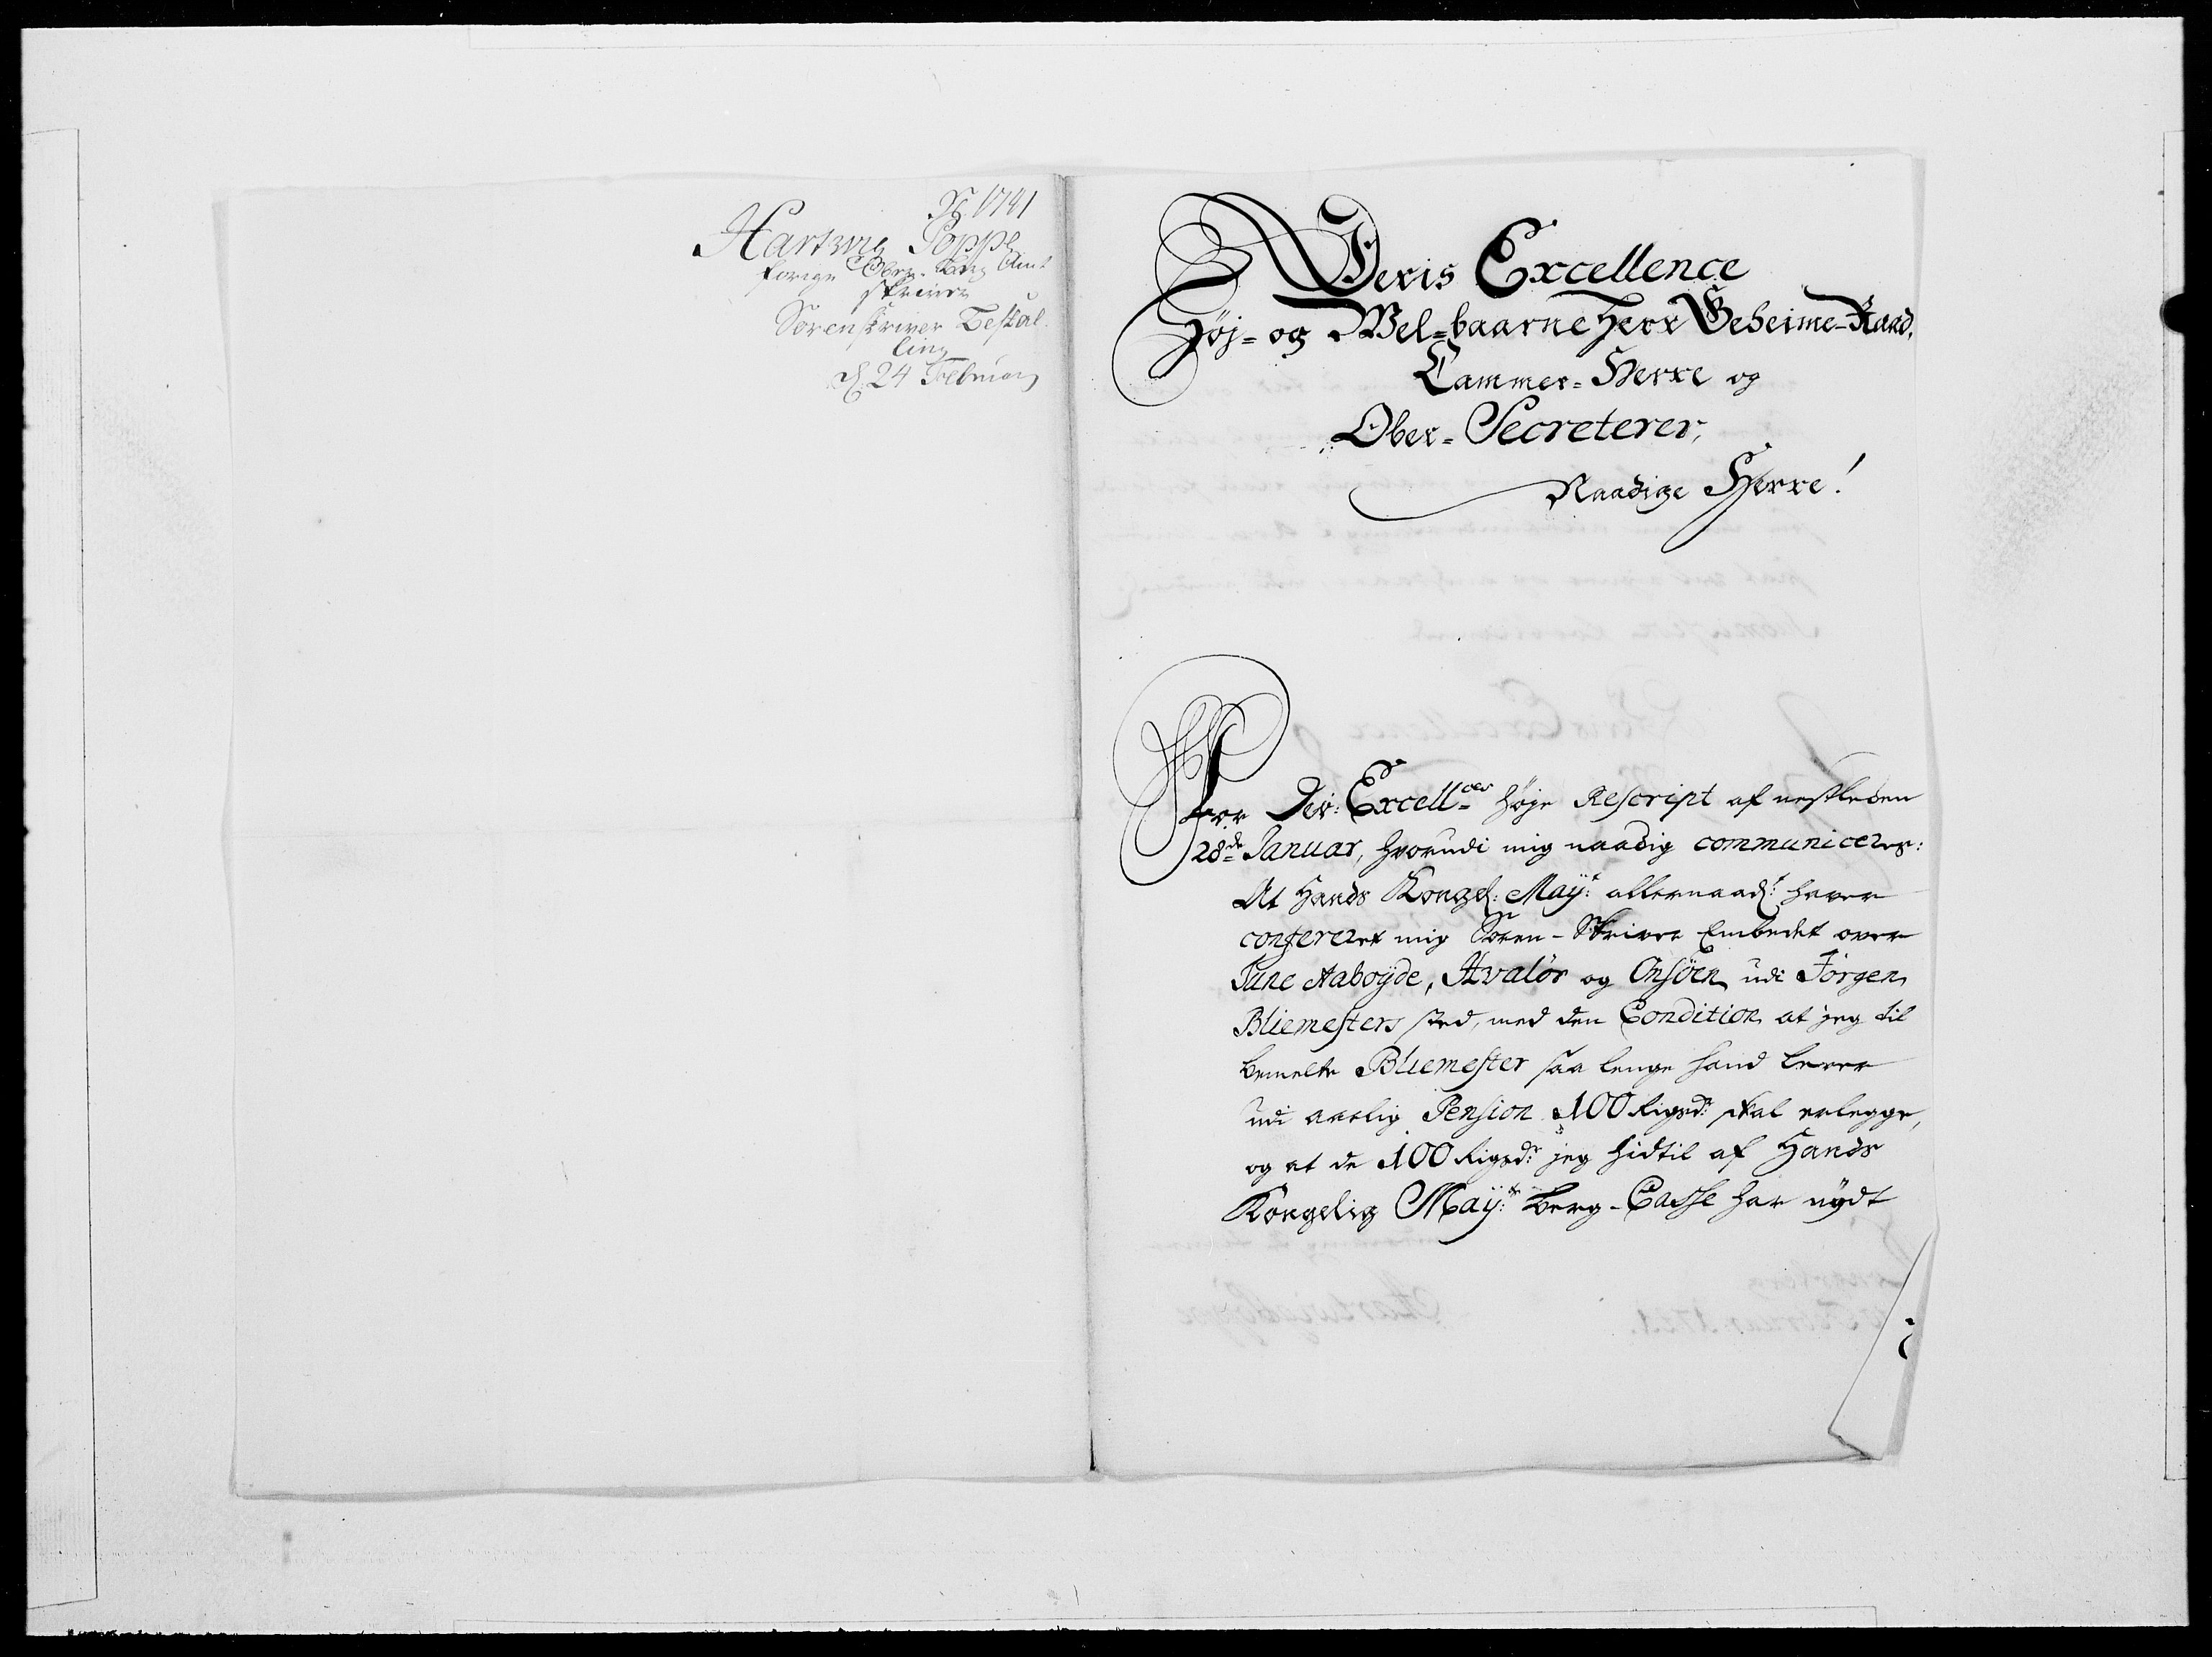 1741
Hartvig Poppe
forige Ober-Berg Amt
skriver
Sorenskriver Bestal
ling
d 24 Februarj
Deris Excellence
Høj- og Wel-baarne Herr Geheime-Raad,
Cammer-Herre og
Ober-Secreterer,
Naadige Herre!
For Der: Excell:ces høje Rescript af nestleden
28de Januar, hvorudi mig naadig communiceres:
At Hands Kongel: Maÿ:t allernaad:t haver
confereret mig Soren-Skriver Embedet over
Tune Aaboyde, Hvalör og Onsöen udi Jörgen
Bliemesters sted, med den Condition at jeg til
bemelte Bliemester saa lenge hand lever
udi aarlig Pension 100 Rigsd:r skal erlegge,
og at de 100 Rigsd:r jeg hidtil af Hands
Kongelig Maÿ:ts Berg-Casse har nÿdt